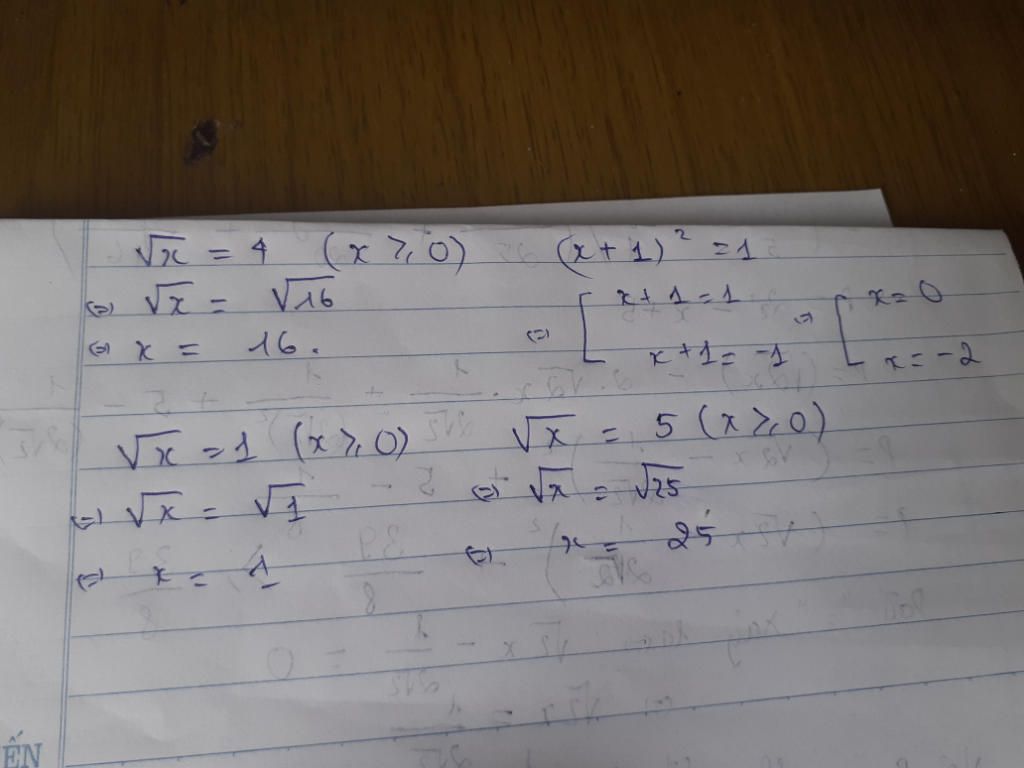 √x = 4 (x ⩾ 0)
⇔ √x = √16
⇔ x = 16.
(x + 1)² = 1
⇔ [ x + 1 = 1 ⇔ [ x = 0
x + 1 = -1 x = -2
√x = 1 (x ⩾ 0)
⇔ √x = √1
⇔ x = 1
√x = 5 (x ⩾ 0)
⇔ √x = √25
⇔ x = 25
ẾN